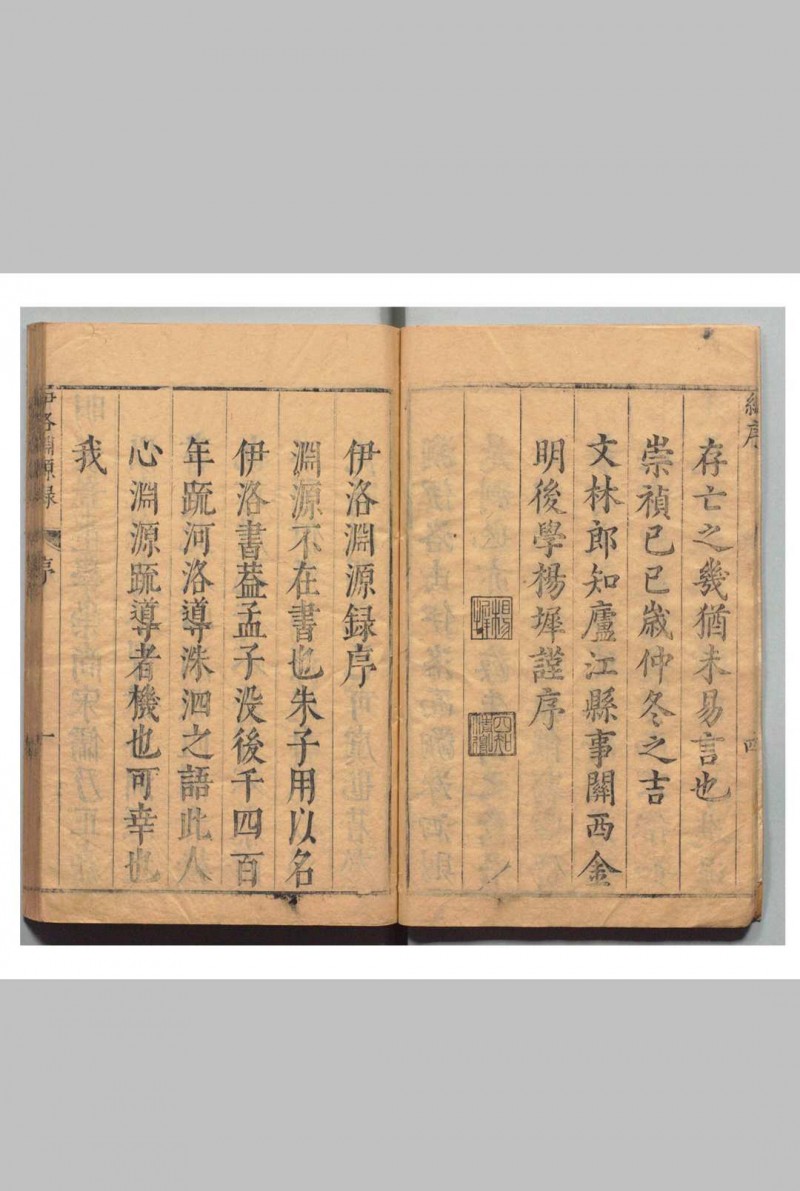 總序
四
存亡之幾猶未易言也
崇禎己巳歲仲冬之吉
文林郎知廬江縣事關西金
明後學楊墀謹序
楊墀
伊洛淵源録序
淵源不在書也朱子用以名
伊洛書葢孟子没後千四百
年䟽河洛導洙泗之語此人
心淵源䟽導者機也可幸也
我
伊洛淵源録
序
一